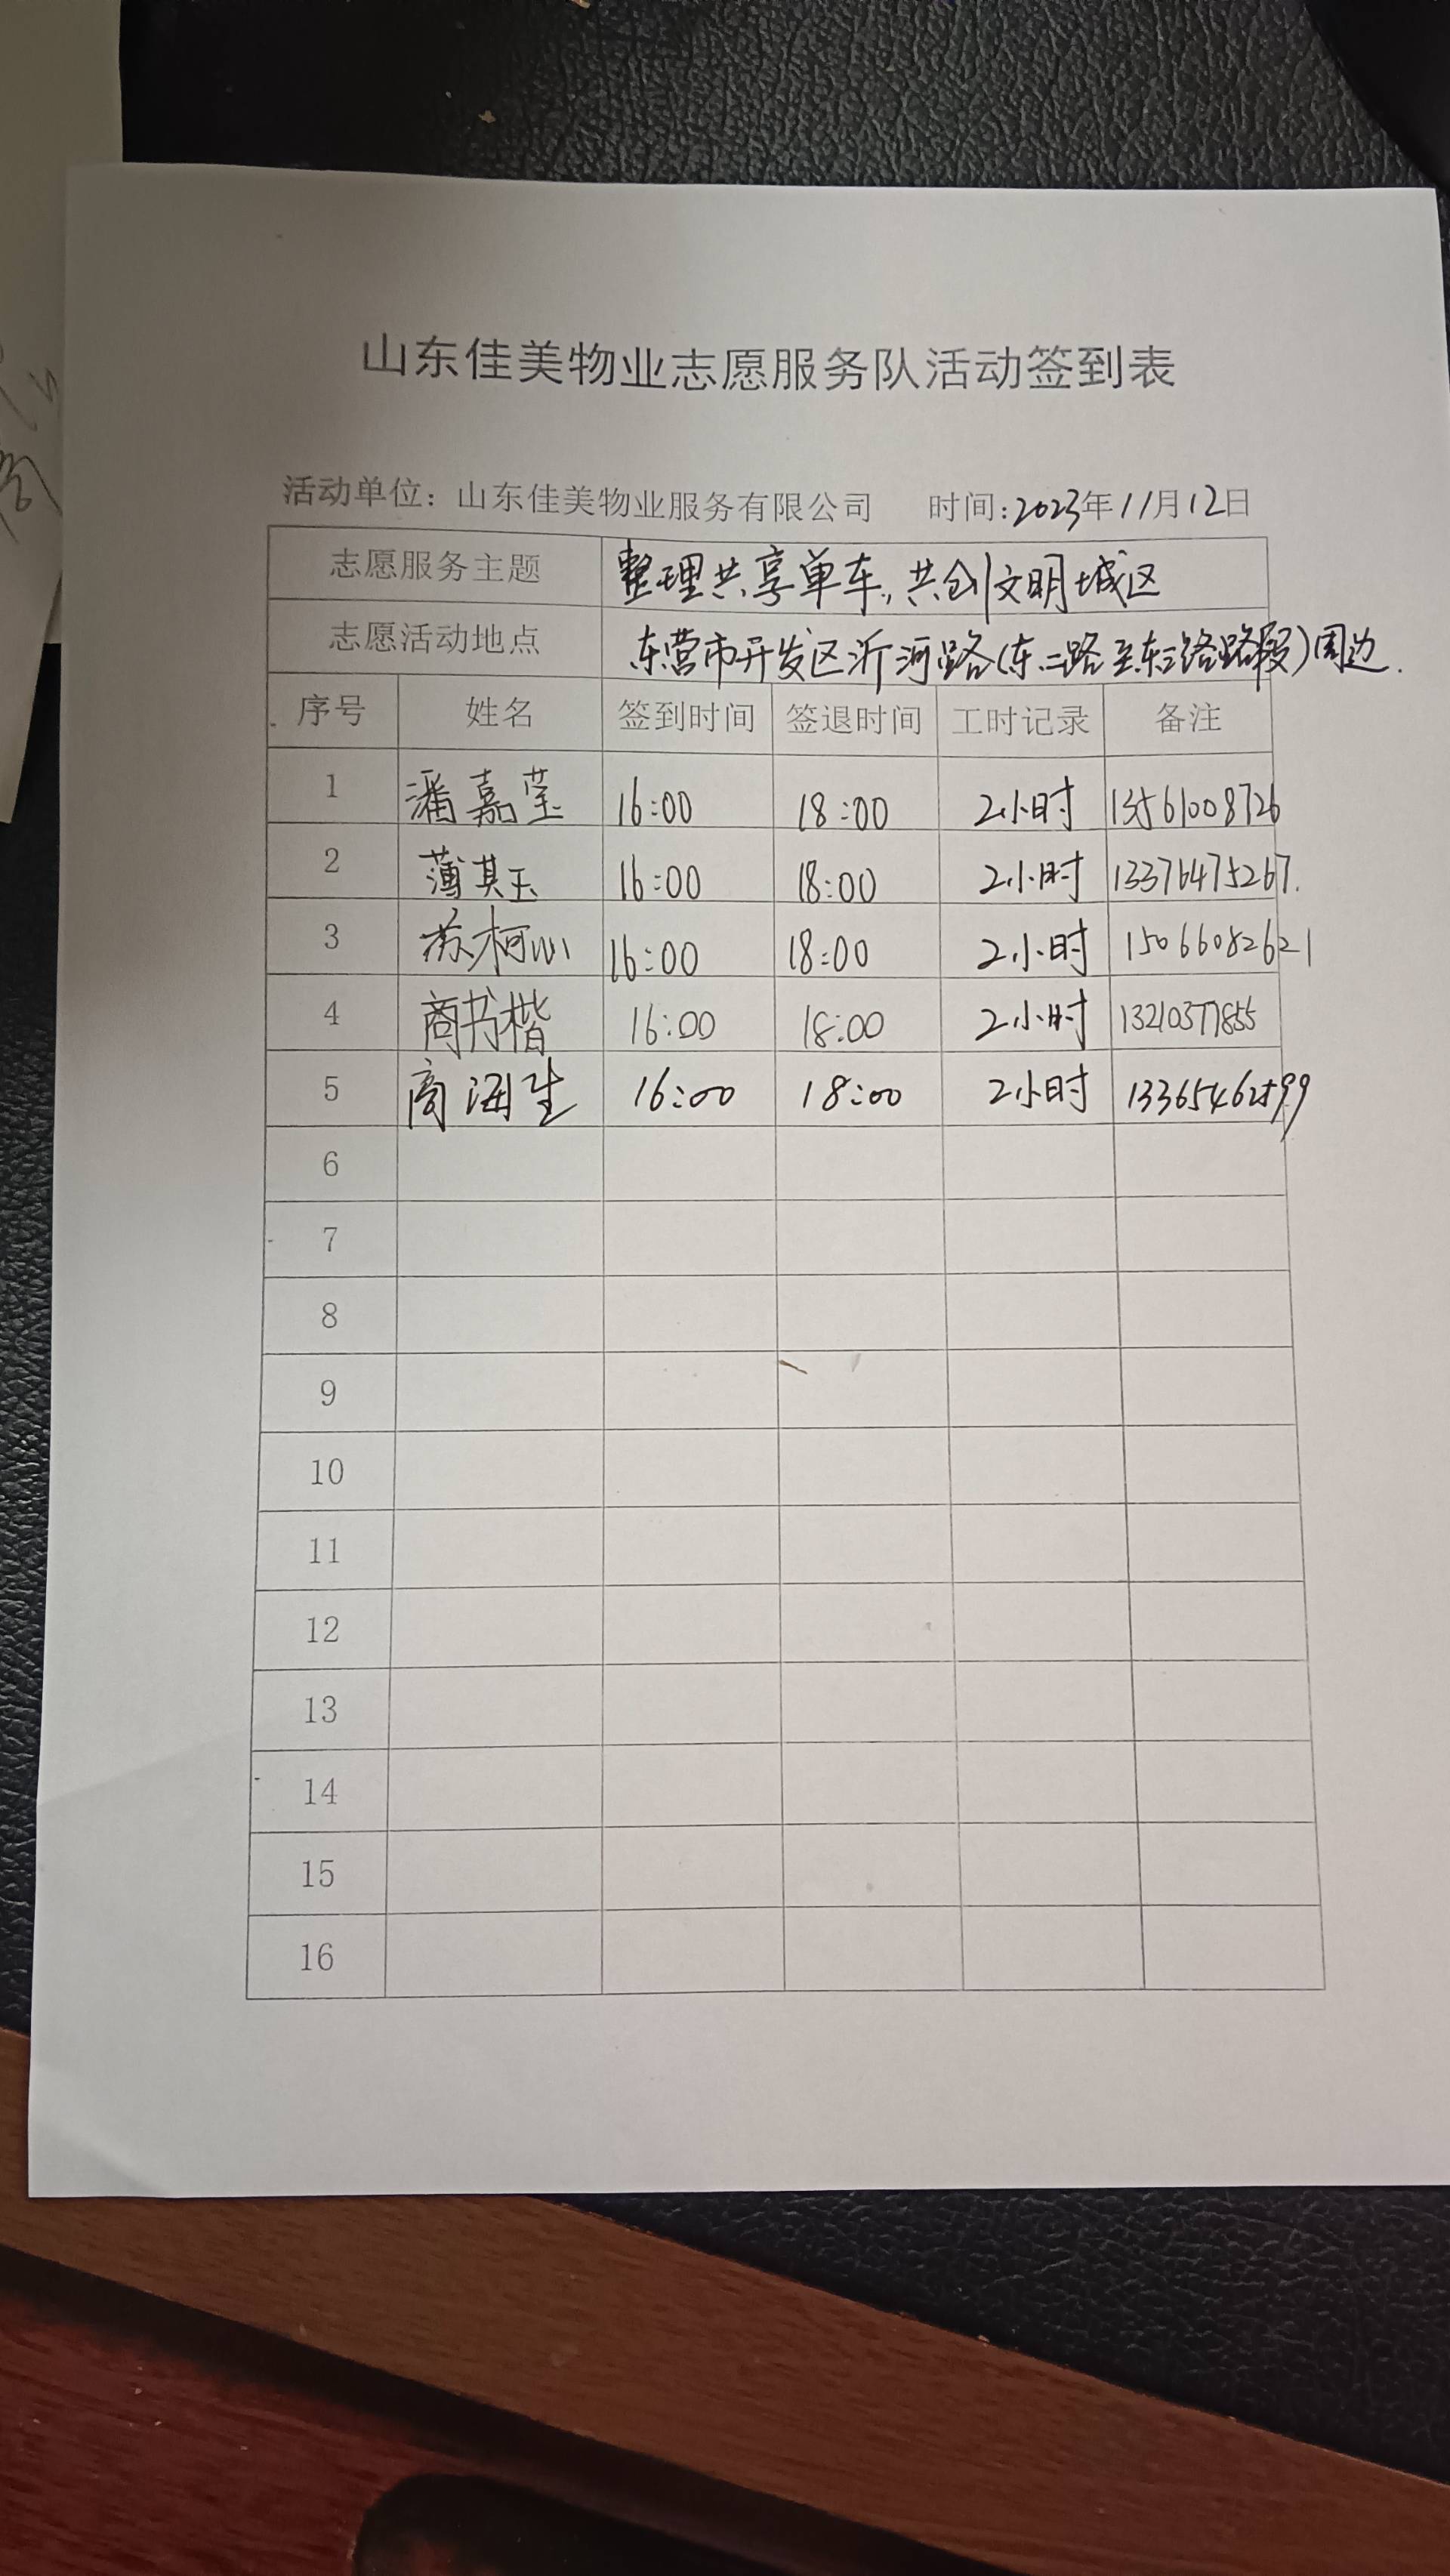 山东佳美物业志愿服务队活动签到表
活动单位：山东佳美物业服务有限公司 时间：2023年11月12日
志愿服务主题 整理共享单车，共创文明城区
志愿活动地点 东营市开发区沂河路（东二路至东三路路段）周边.
序号 姓名 签到时间 签退时间 工时记录 备注
1 潘嘉莹 16:00 18:00 2小时 13561008726
2 薄其玉 16:00 18:00 2小时 13376475267.
3 苏柯 16:00 18:00 2小时 15066082621
4 商书楷 16:00 18:00 2小时 13210377855
5 商海生 16:00 18:00 2小时 13365462599
6
7
8
9
10
11
12
13
14
15
16